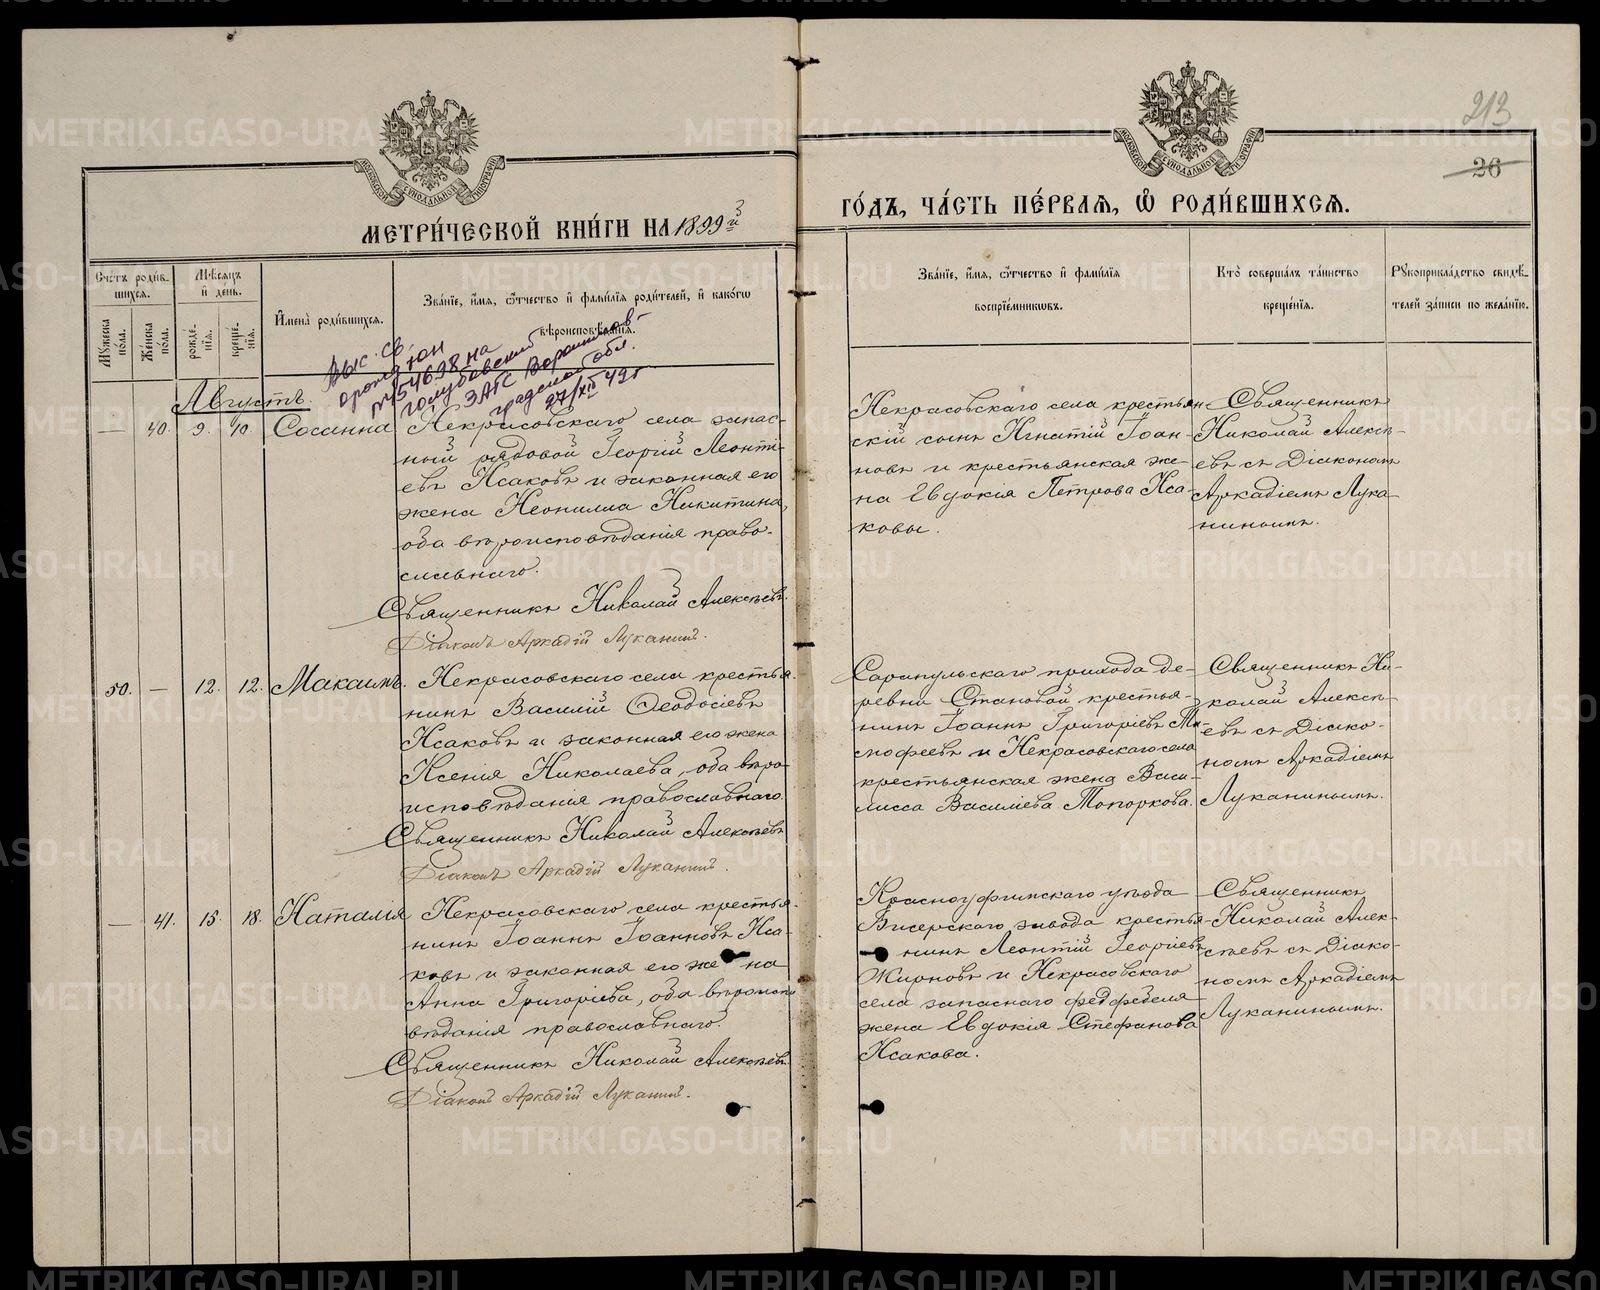 213
26
МЕТРИ́ЧЕСКОЙ КНИ́ГИ НА 1899й
ГО́ДЪ, ЧА́СТЬ ПЕ́РВАЯ, Ѡ РОДИ́ВШИХСЯ.
Сче́тъ роди́в-
шихся.
Му́жеска по́ла.
Же́нска по́ла.
Мѣ́сяцъ и де́нь.
рожде́-
нія.
креще́-
нія.
Имена̀ роди́вшихся.
Зва́ніе, и́мя, ѻ́тчество и фами́лія роди́телей, и како́гѡ
вѣроисповѣ́данія.
Зва́ніе, и́мя, ѻ́тчество и фами́лія
воспріе́мниковъ.
Кто̀ соверша́лъ та́инство
креще́нія.
Рукоприкла́дство свидѣ́-
телей за́писи по жела́нію.
Выс. св.
№ 54698 на
Голубовский
ЗАГС Ворошилов-
градской обл.
27/XII 49г
Августъ.
— 40. 9. 10. Сосанна
Некрасовскаго села запас-
ный рядовой Георгій Леонті-
евъ Исаковъ и законная его
жена Неонилла Никитина,
оба вѣроисповѣданія право-
славнаго.
Священникъ Николай Алексѣевъ.
Діаконъ Аркадій Луканинъ.
Некрасовскаго села крестьян-
скій сынъ Игнатій Іоан-
новъ и крестьянская же-
на Евдокія Петрова Иса-
ковы.
Священникъ
Николай Алексѣ-
евъ съ Діакономъ
Аркадіемъ Лука-
нинымъ.
50. — 12. 12. Максимъ.
Некрасовскаго села крестья-
нинъ Василій Ѳеодосіевъ
Исаковъ и законная его жена
Ксенія Николаева, оба вѣро-
исповѣданія православнаго.
Священникъ Николай Алексѣевъ
Діаконъ Аркадій Луканинъ.
Сарапульскаго прихода де-
ревни Становой крестья-
нинъ Іоаннъ Григоріевъ Ти-
мофеевъ и Некрасовскаго села
крестьянская жена Васи-
лисса Василіева Топоркова.
Священникъ Ни-
колай Алексѣ-
евъ съ Діако-
номъ Аркадіемъ
Луканинымъ.
— 41. 15. 18. Наталія
Некрасовскаго села крестья-
нинъ Іоаннъ Іоанновъ Иса-
ковъ и законная его жена
Анна Григоріева, оба вѣроиспо-
вѣданія православнаго.
Священникъ Николай Алексѣевъ.
Діаконъ Аркадій Луканинъ.
Красноуфимскаго уѣзда
Бисерскаго завода крестья-
нинъ Леонтій Георгіевъ
Жирновъ и Некрасовскаго
села запаснаго федфебеля
жена Евдокія Стефанова
Исакова.
Священникъ
Николай Алек-
сѣевъ съ Діако-
номъ Аркадіемъ
Луканинымъ.
METRIKI.GASO-URAL.RU